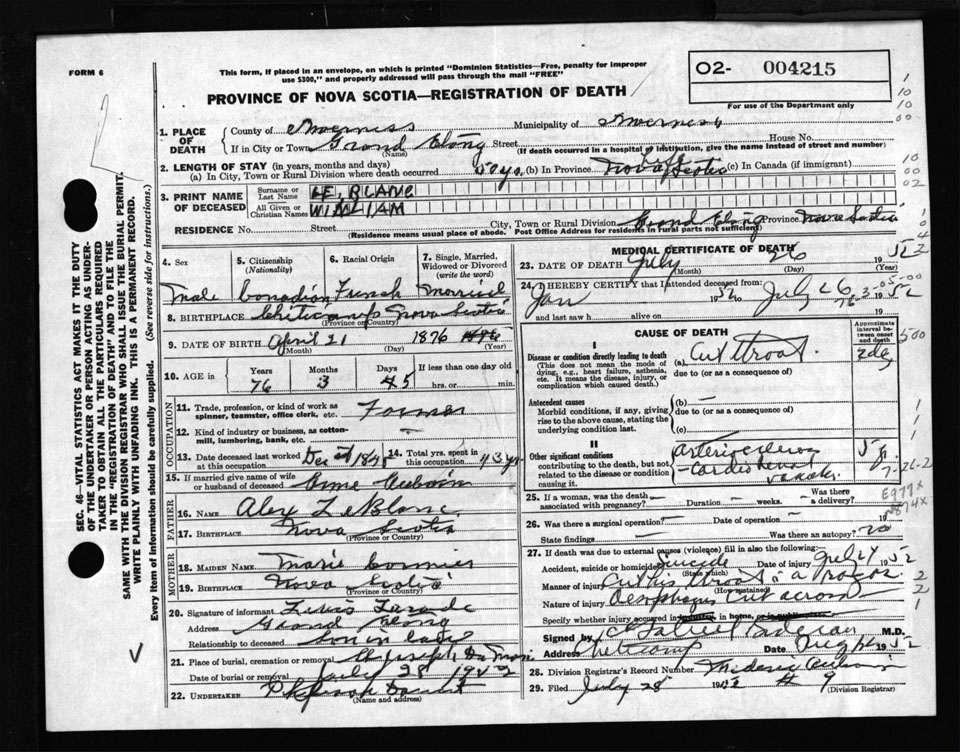 FORM 6
This form, if placed in an envelope, on which is printed "Dominion Statistics—Free, penalty for improper
use $300," and properly addressed will pass through the mail "FREE"
O2- 004215
For use of the Department only
PROVINCE OF NOVA SCOTIA—REGISTRATION OF DEATH
SEC. 46—VITAL STATISTICS ACT MAKES IT THE DUTY
OF THE UNDERTAKER OR PERSON ACTING AS UNDER-
TAKER TO OBTAIN ALL THE PARTICULARS REQUIRED
IN THE "REGISTRATION OF DEATH" AND TO FILE THE
SAME WITH THE DIVISION REGISTRAR WHO SHALL ISSUE THE BURIAL PERMIT.
WRITE PLAINLY WITH UNFADING INK. THIS IS A PERMANENT RECORD.
Every item of information should be carefully supplied. (See reverse side for instructions.)
1. PLACE OF DEATH
County of Inverness Municipality of Inverness
If in City or Town Grand Etang Street House No.
(Name) (If death occurred in a hospital or institution, give the name instead of street and number)
2. LENGTH OF STAY (in years, months and days)
(a) In City, Town or Rural Division where death occurred yrs. (b) In Province Nova Scotia (c) In Canada (if immigrant)
3. PRINT NAME OF DECEASED
Surname or Last Name LE BLANC
All Given or Christian Names WILLIAM
RESIDENCE No. Street City, Town or Rural Division Grand Etang Province Nova Scotia
(Residence means usual place of abode. Post Office Address for residents in rural parts not sufficient)
4. Sex
5. Citizenship (Nationality)
6. Racial Origin
7. Single, Married, Widowed or Divorced (write the word)
Male Canadian French Married
8. BIRTHPLACE Cheticamp Nova Scotia
(Province or Country)
9. DATE OF BIRTH April 21 1876
(Month) (Day) (Year)
10. AGE in Years Months Days If less than one day old
76 3 5 hrs. or min.
OCCUPATION
11. Trade, profession, or kind of work as spinner, teamster, office clerk, etc. Farmer
12. Kind of industry or business, as cotton-mill, lumbering, bank, etc. —
13. Date deceased last worked at this occupation Dec
14. Total yrs. spent in this occupation 43 yrs
15. If married give name of wife or husband of deceased Anne Aucoin
FATHER
16. NAME Alex LeBlanc
17. BIRTHPLACE Nova Scotia
(Province or Country)
MOTHER
18. MAIDEN NAME Marie Cormier
19. BIRTHPLACE Nova Scotia
(Province or Country)
20. Signature of informant Louis
Address Grand Etang
Relationship to deceased Son in law
21. Place of burial, cremation or removal St Joseph Du Moine
Date of burial or removal July 28 19
22. UNDERTAKER
(Name and address)
MEDICAL CERTIFICATE OF DEATH
23. DATE OF DEATH July 26 1952
(Month) (Day) (Year)
24. I HEREBY CERTIFY that I attended deceased from:
Jan 1952 to July 26 1952
and last saw h alive on 19
CAUSE OF DEATH
Approximate interval between onset and death
I
Disease or condition directly leading to death
(This does not mean the mode of dying, e.g., heart failure, asthenia, etc. It means the disease, injury, or complication which caused death.)
(a) Cut throat. 2 ds
due to (or as a consequence of)
Antecedent causes
Morbid conditions, if any, giving rise to the above cause, stating the underlying condition last.
(b) —
due to (or as a consequence of)
(c)
II
Other significant conditions
contributing to the death, but not related to the disease or condition causing it.
Cardio renal
25. If a woman, was the death associated with pregnancy? — Duration — weeks. Was there a delivery? —
26. Was there a surgical operation? — Date of operation —
State findings — Was there an autopsy? no
27. If death was due to external causes (violence) fill in also the following:
Accident, suicide or homicide Suicide Date of injury July 1952
(State which)
Manner of injury Cut his throat a razor.
(How sustained)
Nature of injury Oesophagus cut across
Specify whether injury occurred in industry, in home, or in public place
Signed by M.D.
Address Cheticamp Date 1952
28. Division Registrar's Record Number
29. Filed July 28 1952 # 9
(Division Registrar)